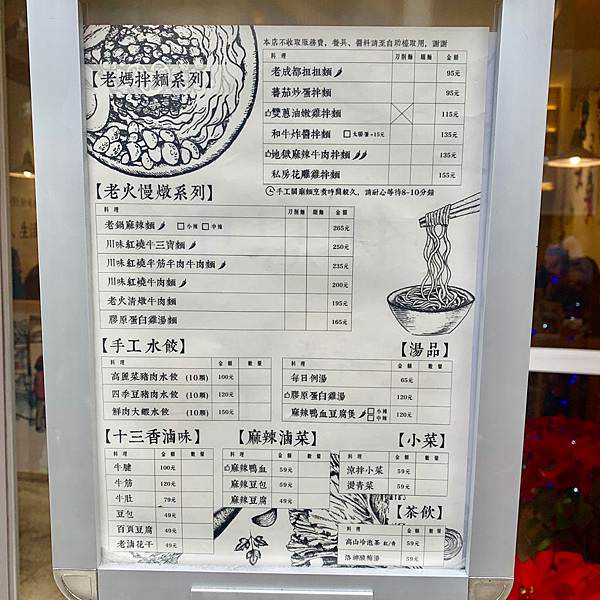 本店不收取服務費，餐具、醬料請至自助檯取用，謝謝
【老媽拌麵系列】
料理 刀削麵 細麵 金額
老成都担担麵 95元
蕃茄炒蛋拌麵 95元
雙蔥油嫩雞拌麵 115元
和牛炸醬拌麵 太陽蛋+15元 135元
地獄麻辣牛肉拌麵 135元
私房花雕雞拌麵 155元
手工關廟麵烹煮時間較久，請耐心等待8-10分鐘
【老火慢燉系列】
料理 刀削麵 細麵 金額
老鍋麻辣麵 小辣 中辣 265元
川味紅燒牛三寶麵 250元
川味紅燒半筋半肉牛肉麵 235元
川味紅燒牛肉麵 200元
老火清燉牛肉麵 195元
膠原蛋白雞湯麵 165元
【手工水餃】
料理 金額 數量
高麗菜豬肉水餃 (10顆) 100元
四季豆豬肉水餃 (10顆) 120元
鮮肉大蝦水餃 (10顆) 150元
【湯品】
料理 金額 數量
每日例湯 65元
膠原蛋白雞湯 120元
麻辣鴨血豆腐煲 小辣 中辣 120元
【十三香滷味】
料理 金額 數量
牛腱 100元
牛筋 120元
牛肚 79元
豆包 49元
百頁豆腐 49元
老滷花干 49元
【麻辣滷菜】
料理 金額 數量
麻辣鴨血 59元
麻辣豆包 59元
麻辣豆腐 49元
【小菜】
料理 金額 數量
涼拌小菜 59元
燙青菜 59元
【茶飲】
料理 金額 數量
高山冷泡茶 紅/青 59元
洛神酸梅湯 59元